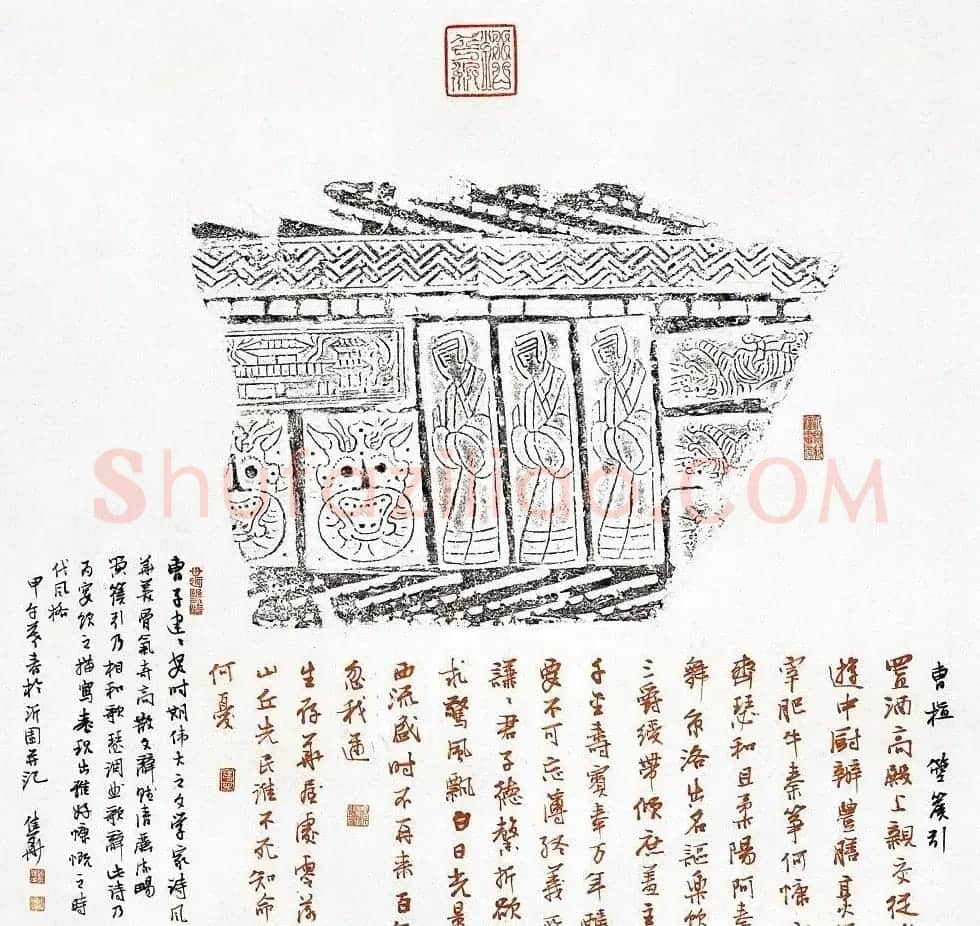 Shufaziliao.COM
曹植 箜篌引
置酒高殿上親交從
遊中厨辦豐膳烹
宰肥牛秦筝何慷
齊瑟和且柔陽阿奏
舞京洛出名謳樂飲
三爵緩帶傾庶羞主
千金壽賓奉万年酬
要不可忘薄終義
謙〻君子德磬折欲
求驚風飄白日光景
西流盛时不再来百
忽我遒
生存華屋處零落
山丘先民誰不死知命
何憂
曹子建〻安时期伟大之文学家诗风
華美骨氣奇高散文辭賦清麗流暢
箜篌引乃相和歌瑟调曲歌辭此诗乃
为宴飲之描寫表现出雅好慷慨之時
代风格
甲午春 於沂園并记